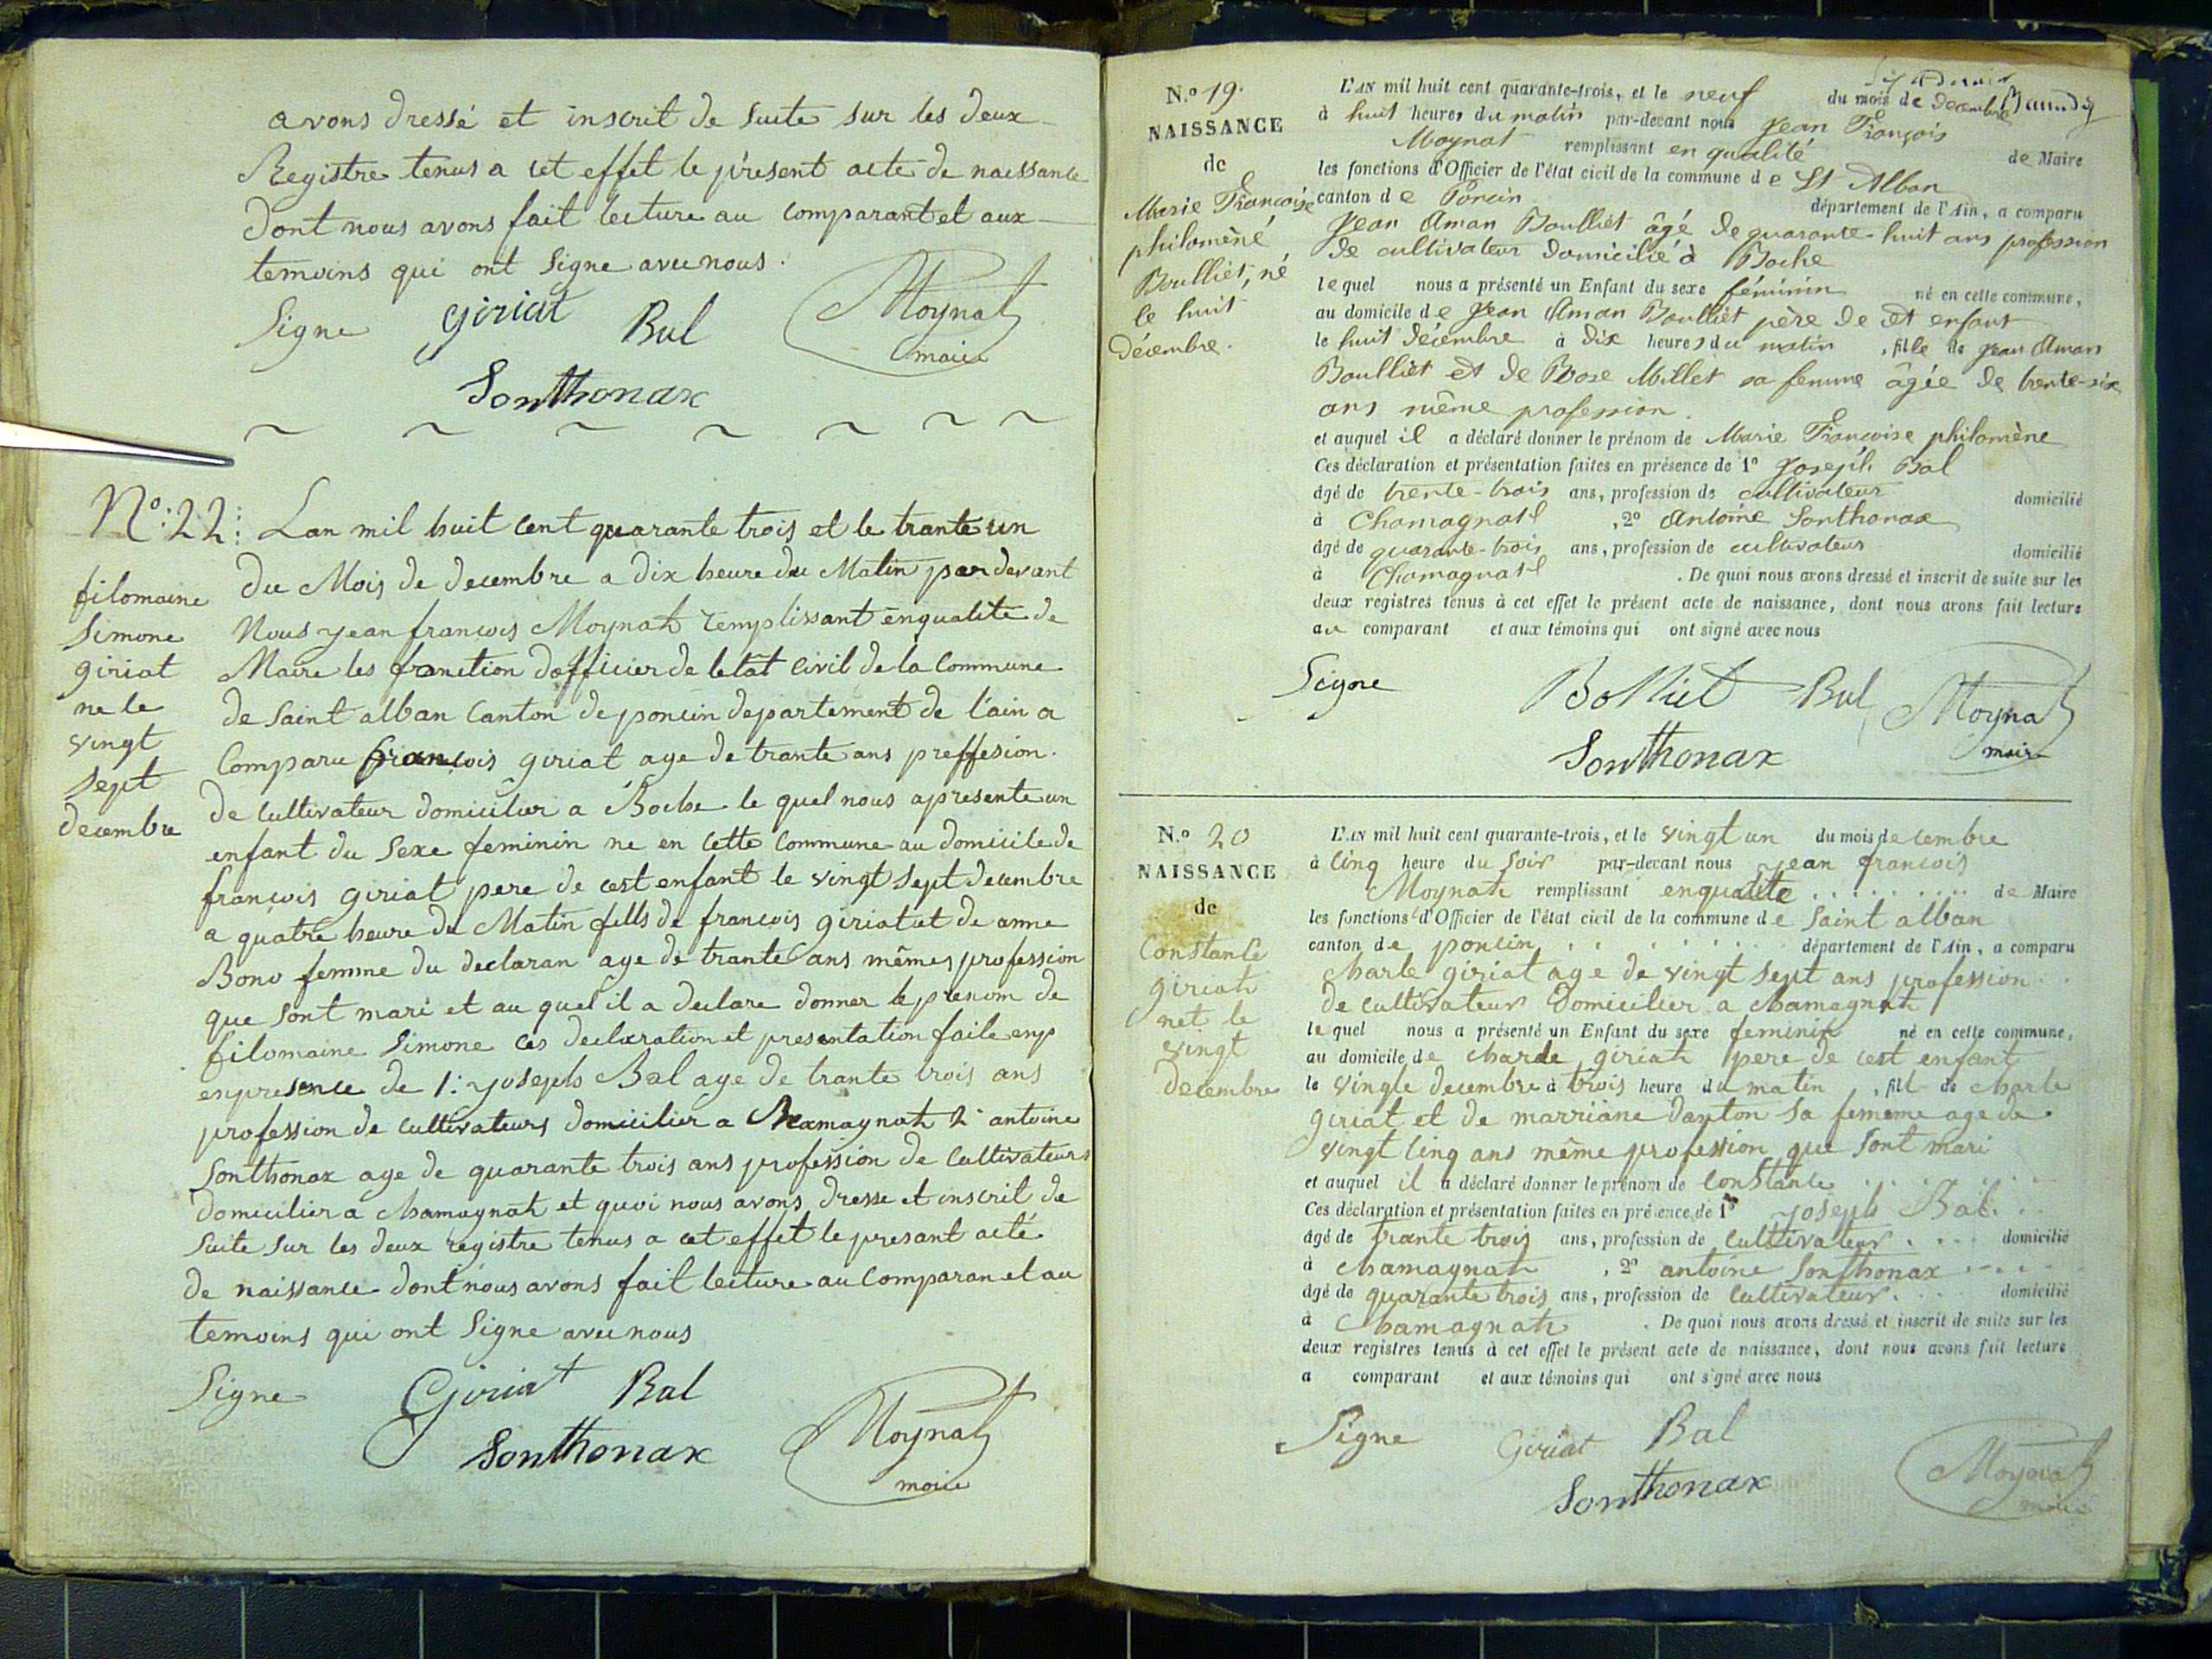 avons dressé et inscrit de suite sur les deux
Registre tenus a cet effet le présent acte de naissance
dont nous avons fait lecture au comparant et aux
temoins qui ont signe avec nous.
Signe giriat Bal Moynat
maire
Sonthonax
N.º 22: Lan mil huit cent quarante trois et le trante un
du Mois de decembre a dix heure du Matin par devant
Nous jean francois Moynat remplissant enqualité de
Maire les fonction dofficier de letât civil de la Commune
de saint alban Canton de poncin departement de l'ain a
Comparu francois giriat age de trante ans preffesion
de cultivateur domicilier a Boche le quel nous apresente un
enfant du sexe feminin ne en cette commune au domicile de
francois giriat pere de cest enfant le vingt sept decembre
a quatre heure du Matin fills de francois giriat et de anne
Bono femme du declaran age de trante ans mêmes profession
que sont mari et au quel il a declare donner le prenom de
filomaine Simone ces declaration et presentation faite enp
enpresence de 1: joseph Bal age de trante trois ans
profession de cultivateurs domicilier a Chamagnat 2 antoine
Sonthonax age de quarante trois ans profession de cultivateurs
domicilier a chamagnat et quoi nous avons dresse et inscrit de
suite sur les deux registre tenus a cet effet le presant acte
de naissance dont nous avons fait lecture au Comparan et au
temoins qui ont signe avec nous
filomaine
Simone
giriat
ne le
vingt
sept
decembre
Signe Giriat Bal
Sonthonax Moynat
maire
N.º 19.
NAISSANCE
de
Marie Francoise
philomène
Boulliet, né
le huit
décembre.
L'AN mil huit cent quarante-trois, et le neuf du mois de decembre
à huit heures du matin par-devant nous Jean François
Moynat remplissant en qualité de Maire
les fonctions d'Officier de l'état civil de la commune de St Alban
canton de Poncin département de l'Ain, a comparu
Jean Aman Boulliet âgé de quarante-huit ans profession
de cultivateur domicilié à Boche
lequel nous a présenté un Enfant du sexe féminin né en cette commune,
au domicile de Jean Aman Boulliet père de cet enfant
le huit décembre à dix heures du matin, fille de Jean Aman
Boulliet et de Rose Millet sa femme âgée de trente-six
ans même profession.
et auquel il a déclaré donner le prénom de Marie Francoise philomène
Ces déclaration et présentation faites en présence de 1º Joseph Bal
âgé de trente-trois ans, profession de cultivateur domicilié
à Chamagnat, 2º Antoine Sonthonax
âgé de quarante-trois ans, profession de cultivateur domicilié
à Chamagnat. De quoi nous avons dressé et inscrit de suite sur les
deux registres tenus à cet effet le présent acte de naissance, dont nous avons fait lecture
au comparant et aux témoins qui ont signé avec nous
Signe Bolliet Bal Moynat
Sonthonax maire
N.º 20
NAISSANCE
de
Constance
giriat
net le
vingt
decembre
L'AN mil huit cent quarante-trois, et le vingt un du mois decembre
à cinq heure du soir par-devant nous jean francois
Moynat remplissant enqualite de Maire
les fonctions d'Officier de l'état civil de la commune de saint alban
canton de poncin département de l'Ain, a comparu
charle giriat age de vingt sept ans profession
de cultivateur domicilier a chamagnat
lequel nous a présenté un Enfant du sexe feminin né en cette commune,
au domicile de charle giriat pere de cest enfant
le vingte decembre à trois heure du matin, fill de charle
giriat et de marriane danton sa fememe age de
vingt cinq ans même profession que sont mari
et auquel il a déclaré donner le prénom de Constance
Ces déclaration et présentation faites en présence de 1º joseph Bal
âgé de trante trois ans, profession de cultivateur domicilié
à chamagnat, 2º antoine Sonthonax
âgé de quarante trois ans, profession de cultivateur domicilié
à Chamagnat. De quoi nous avons dressé et inscrit de suite sur les
deux registres tenus à cet effet le présent acte de naissance, dont nous avons fait lecture
a comparant et aux témoins qui ont signé avec nous
Signe Giriat Bal
Sonthonax Moynat
maire